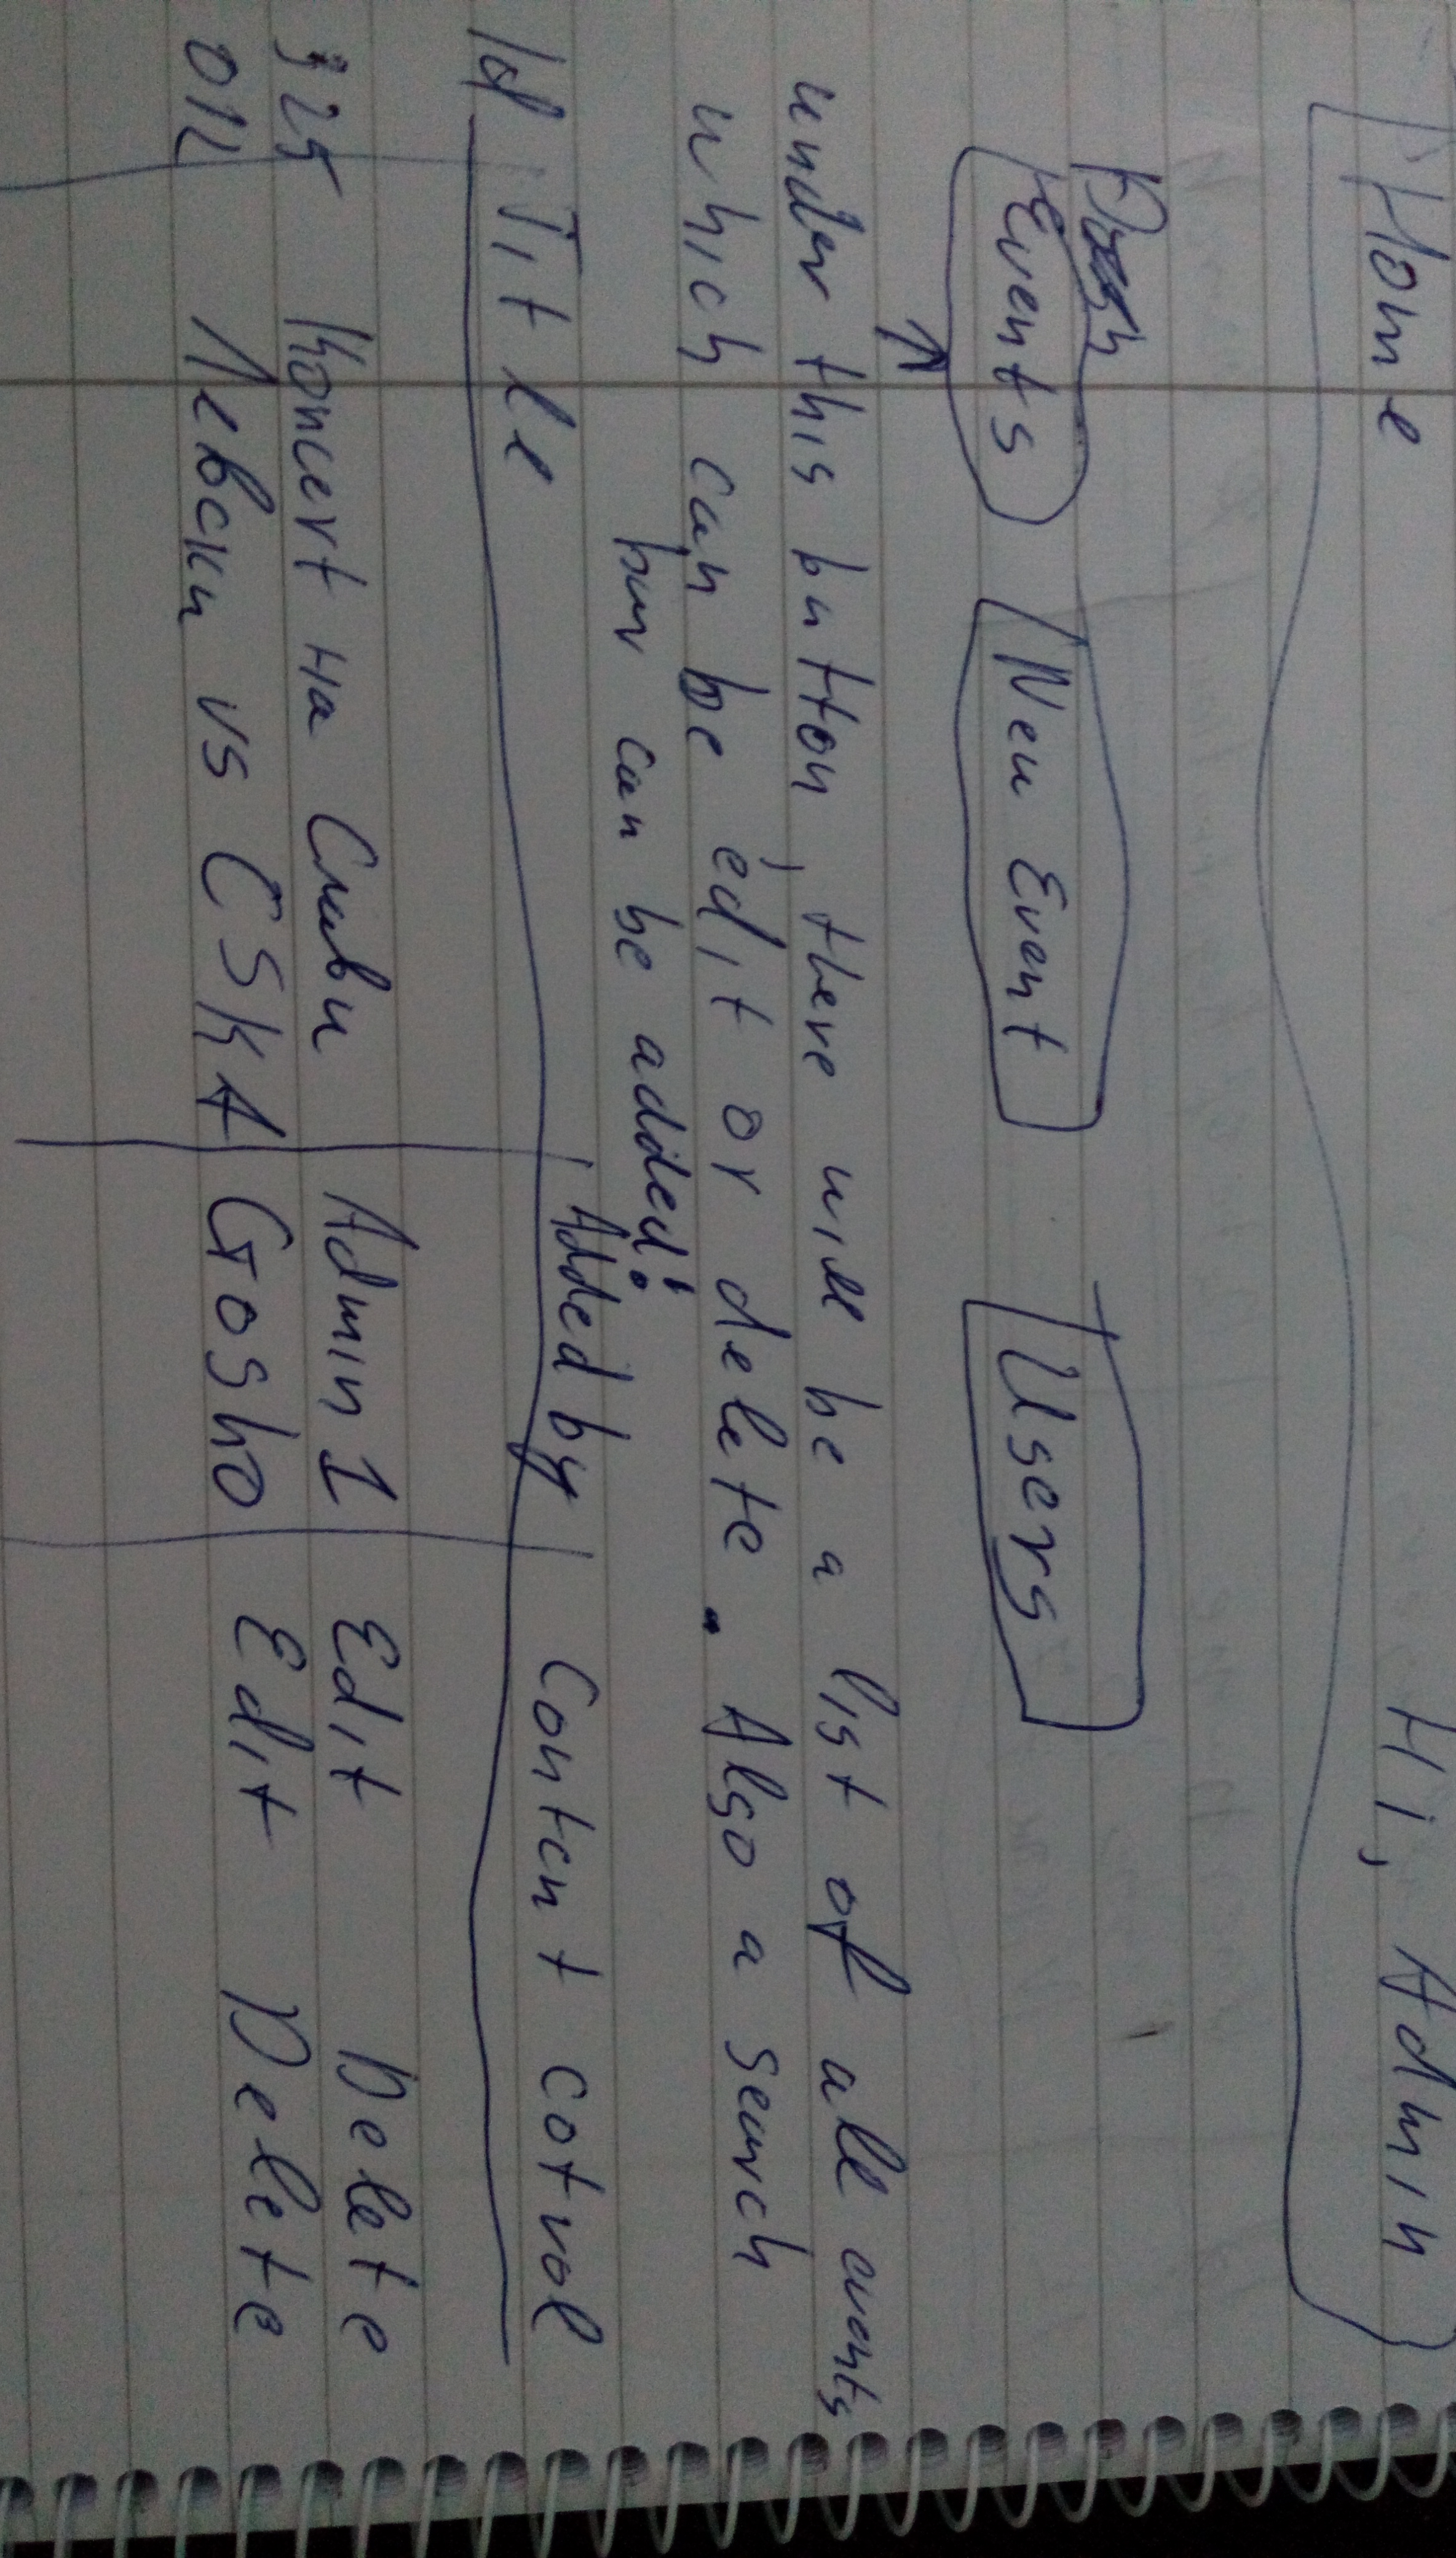 Home Hi, Admin
Events New Event Users
under this button, there will be a list of all events
which can be edit or delete. Also a search
bar can be added!
Id Title Added by Content cotrol
325 Концерт на Слави Admin 1 Edit Delete
012 Левски vs CSKA Gosho Edit Delete